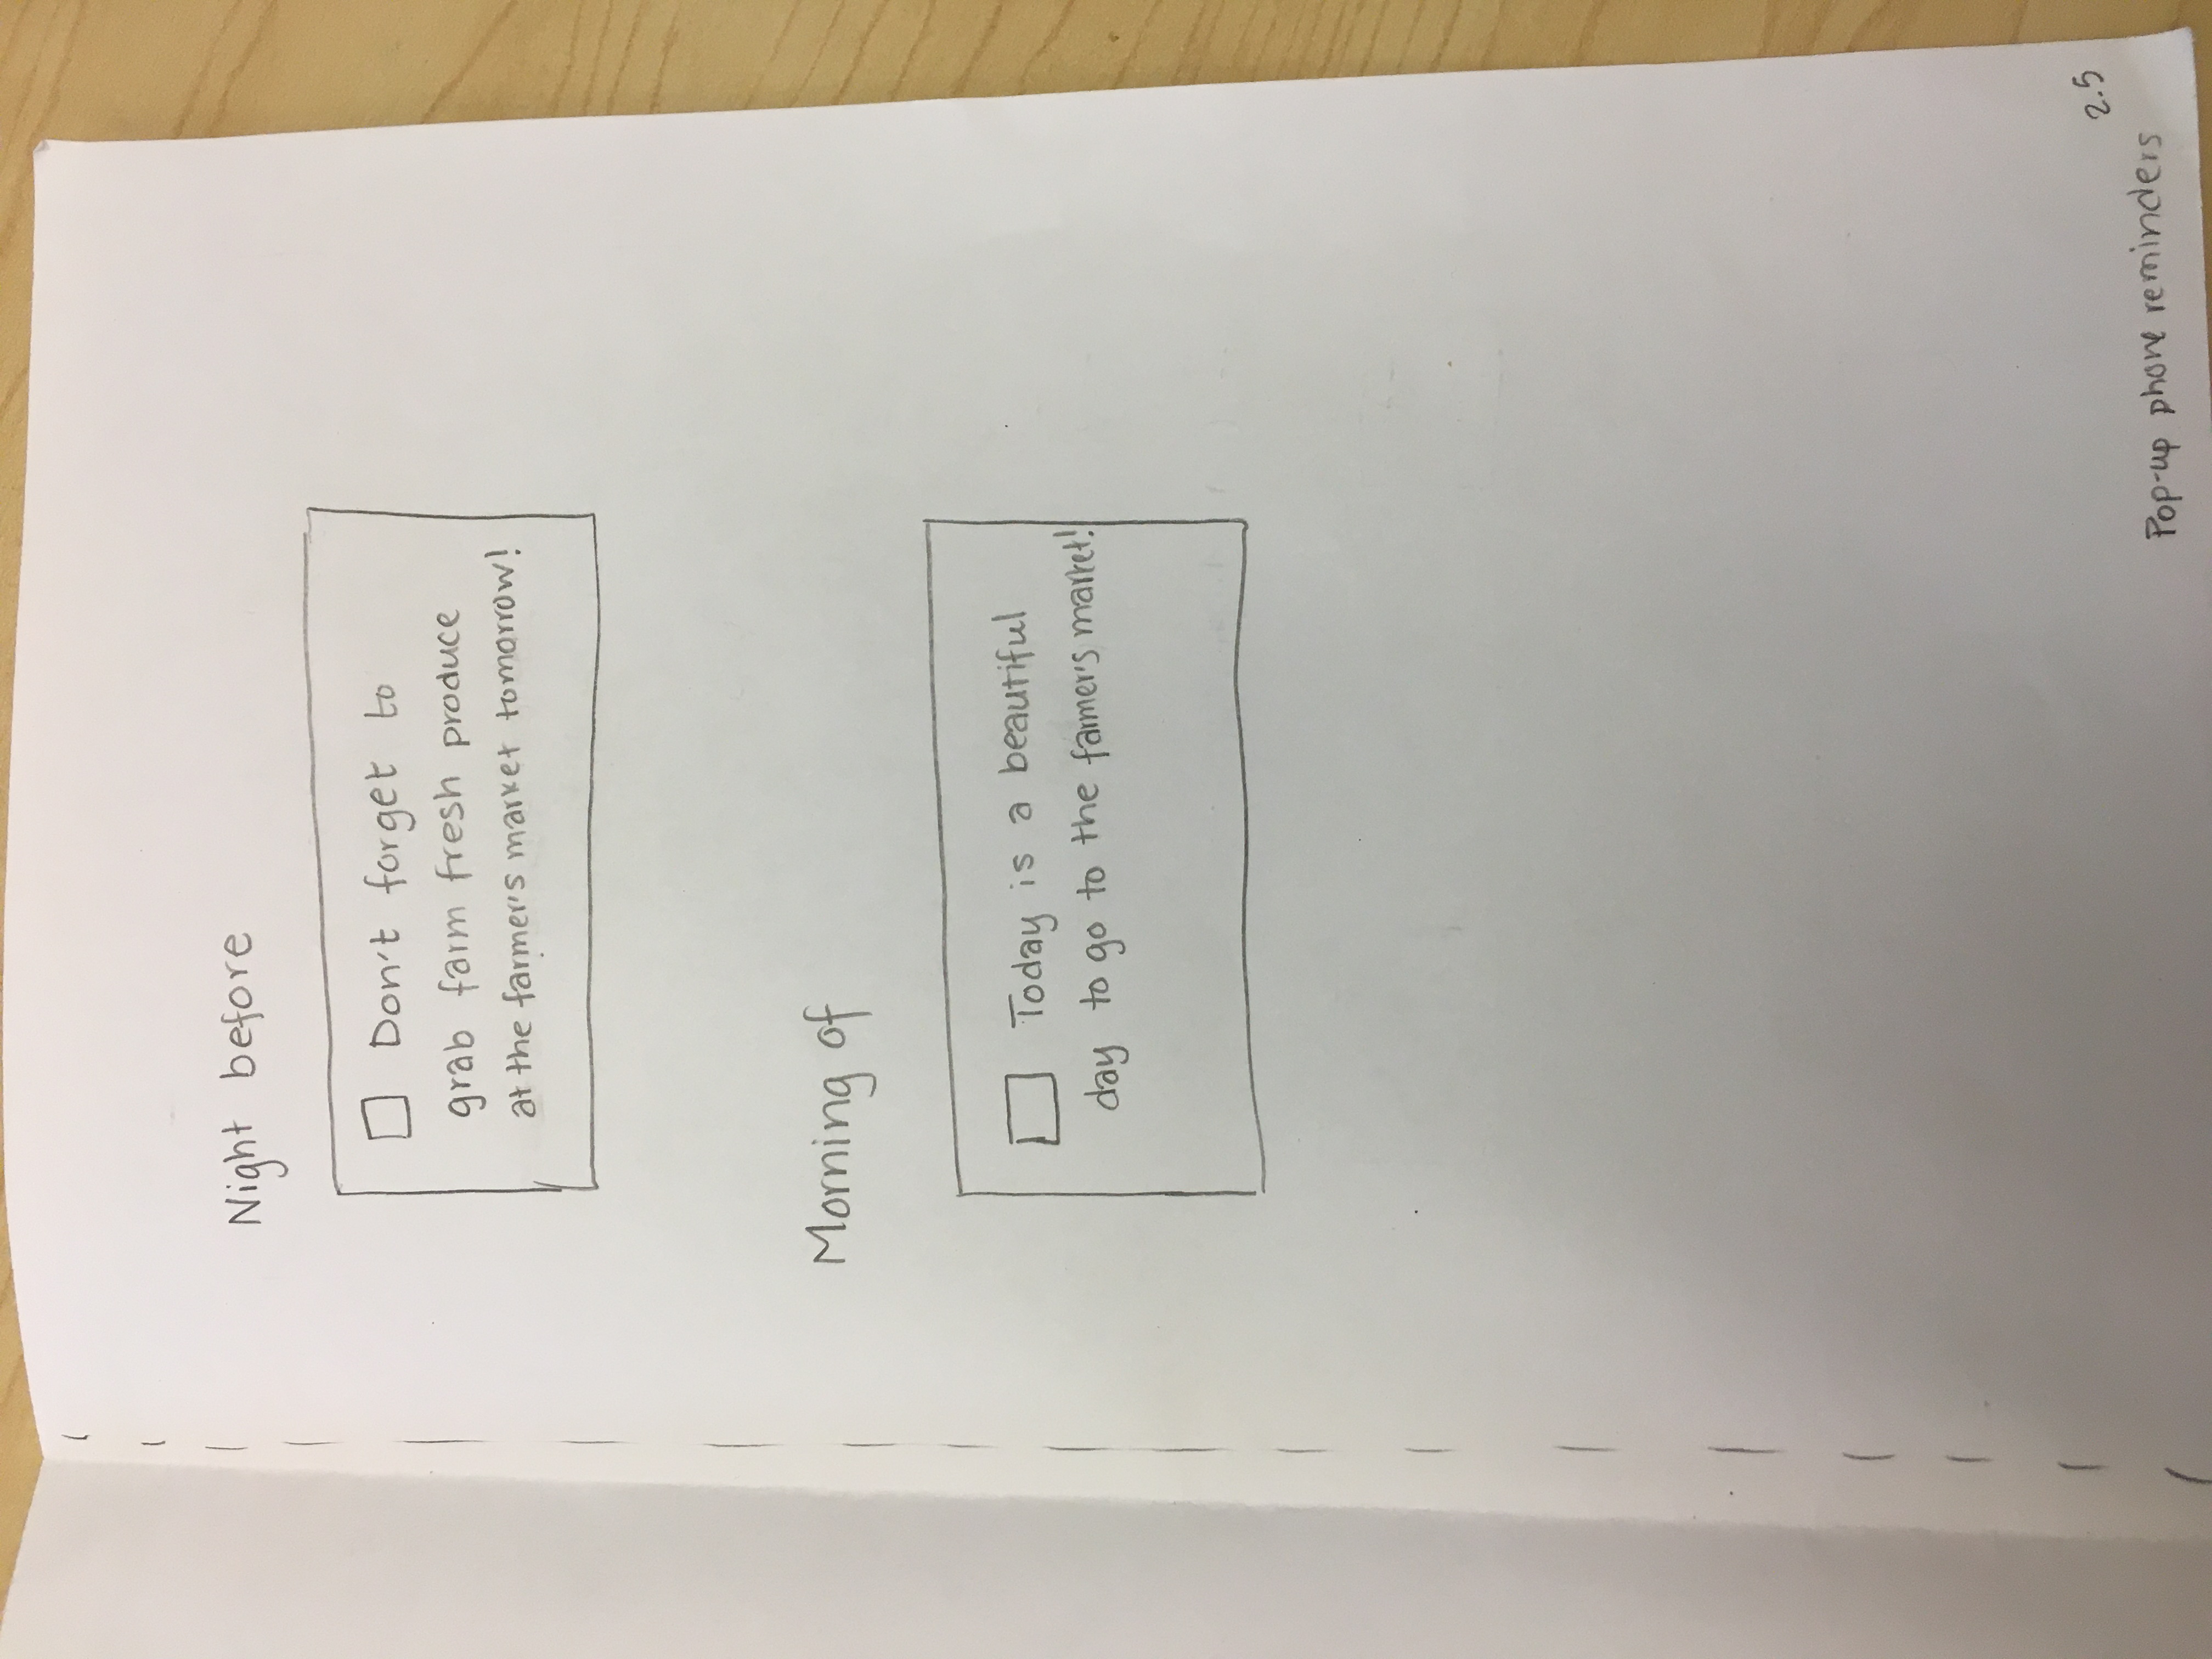 Night before
Don't forget to
grab farm fresh produce
at the farmer's market tomorrow!
Morning of
Today is a beautiful
day to go to the farmer's market!
2.5
Pop-up phone reminders